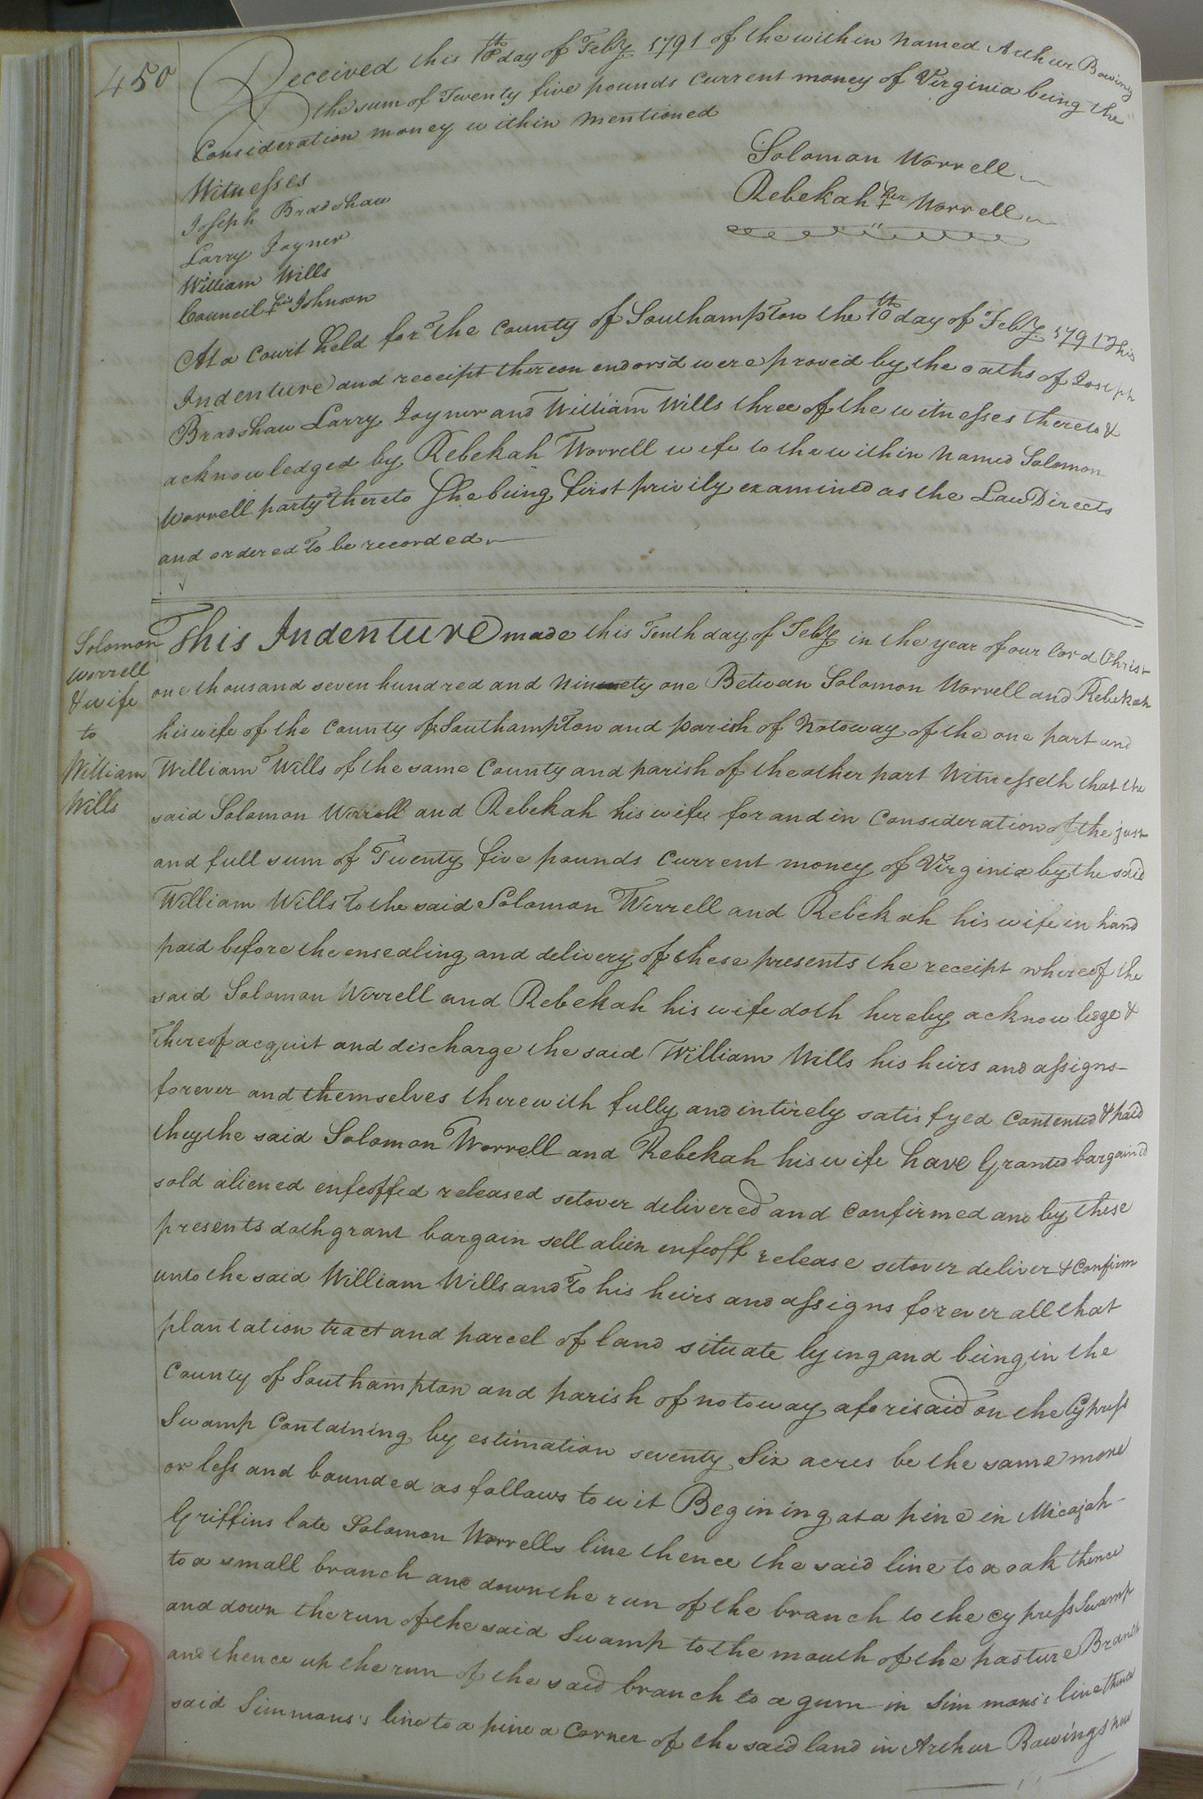 450
Received this 10th day of Feby 1791 of the within named Arthur Bowing
the sum of Twenty five pounds Current money of Virginia being the
Consideration money within mentioned
Solomon Worrell
Rebekah her Worrell
Witnesses
Joseph Bradshaw
Larry Joyner
William Wills
Council his Johnson
At a Court held for the County of Southampton the 10th day of Feby 1791 This
Indenture and receipt thereon endorsd were proved by the oaths of Joseph
Bradshaw Larry Joyner and William Wills three of the witnesses thereto &
acknowledged by Rebekah Worrell wife to the within named Solomon
Worrell party thereto She being first privily examined as the Law Directs
and ordered to be recorded
Solomon
Worrell
& wife
to
William
Wills
This Indenture made this Tenth day of Feby in the year of our lord Christ
one thousand seven hundred and ninety one Between Solomon Worrell and Rebekah
his wife of the County of Southampton and parish of Notoway of the one part and
William Wills of the same County and parish of the other part Witnesseth that the
said Solomon Worrell and Rebekah his wife for and in Consideration of the just
and full sum of Twenty five pounds Current money of Virginia by the said
William Wills To the said Solomon Worrell and Rebekah his wife in hand
paid before the ensealing and delivery of these presents the receipt whereof the
said Solomon Worrell and Rebekah his wife doth hereby acknowledge &
thereof acquit and discharge the said William Wills his heirs and assigns
forever and themselves therewith fully and intirely satisfyed Contented & paid
they the said Solomon Worrell and Rebekah his wife have Granted bargained
sold aliened enfeoffed released setover delivered and Confirmed and by these
presents doth grant bargain sell alien enfeoff release setover deliver & Confirm
unto the said William Wills and To his heirs and assigns forever all that
plantation tract and parcel of land situate lying and being in the
County of Southampton and parish of notoway aforisaid on the Cypress
Swamp Containing by estimation seventy Six acres be the same more
or less and bounded as follows to wit Begining at a pine in Micajah
Griffins late Solomon Worrells line thence the said line to a oak thence
to a small branch and down the run of the branch to the cypress Swamp
and down the run of the said Swamp to the mouth of the pasture Branch
and thence up the run of the said branch to a gum in Simmons's line thence
said Simmons's line to a pine a Corner of the said land in Arthur Bowings new